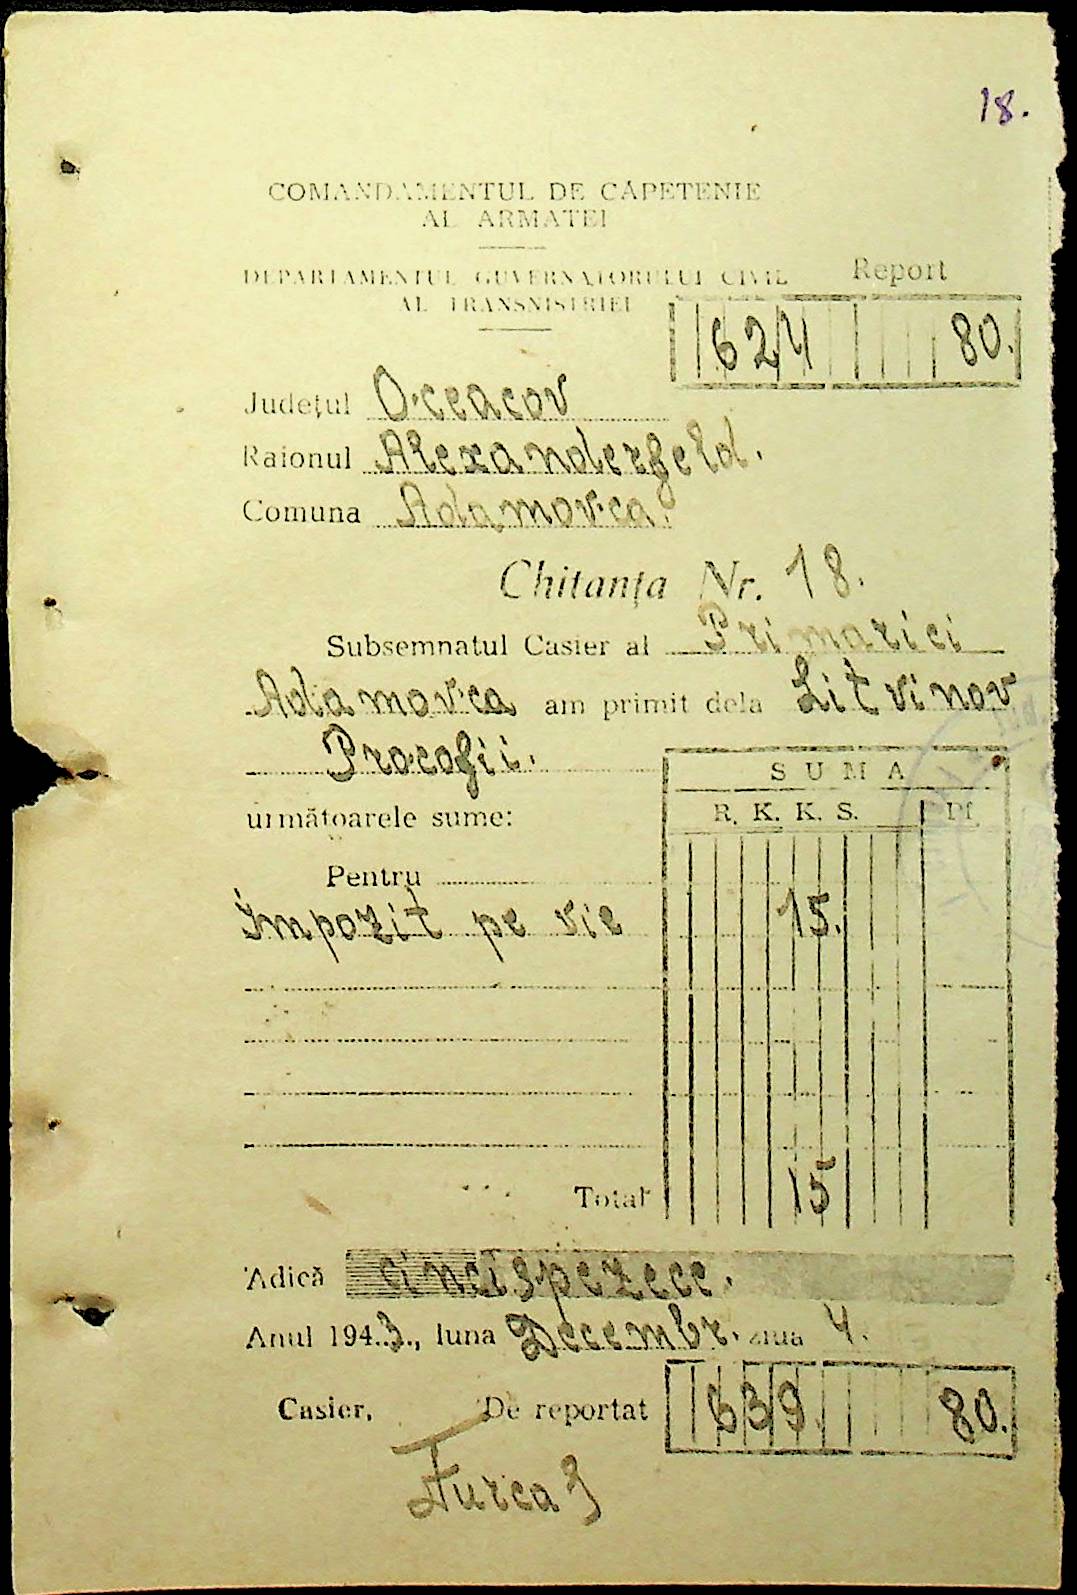 18.
COMANDAMENTUL DE CĂPETENIE
AL ARMATEI
DEPARTAMENTUL GUVERNATORULUI CIVIL
AL TRANSNISTRIEI
Report
624 80.
Județul Oceacov
Raionul Alexanderfeld.
Comuna Adamovca.
Chitanța Nr. 18.
Subsemnatul Casier al Primariei
Adamovca am primit dela Litvinov
Procofii.
următoarele sume:
SUMA
R. K. K. S. Pf.
Pentru
Impozit pe vie 15.
Total 15
Adică cincispezece.
Anul 1943., luna Decembr. ziua 4.
Casier, De reportat 639. 80.